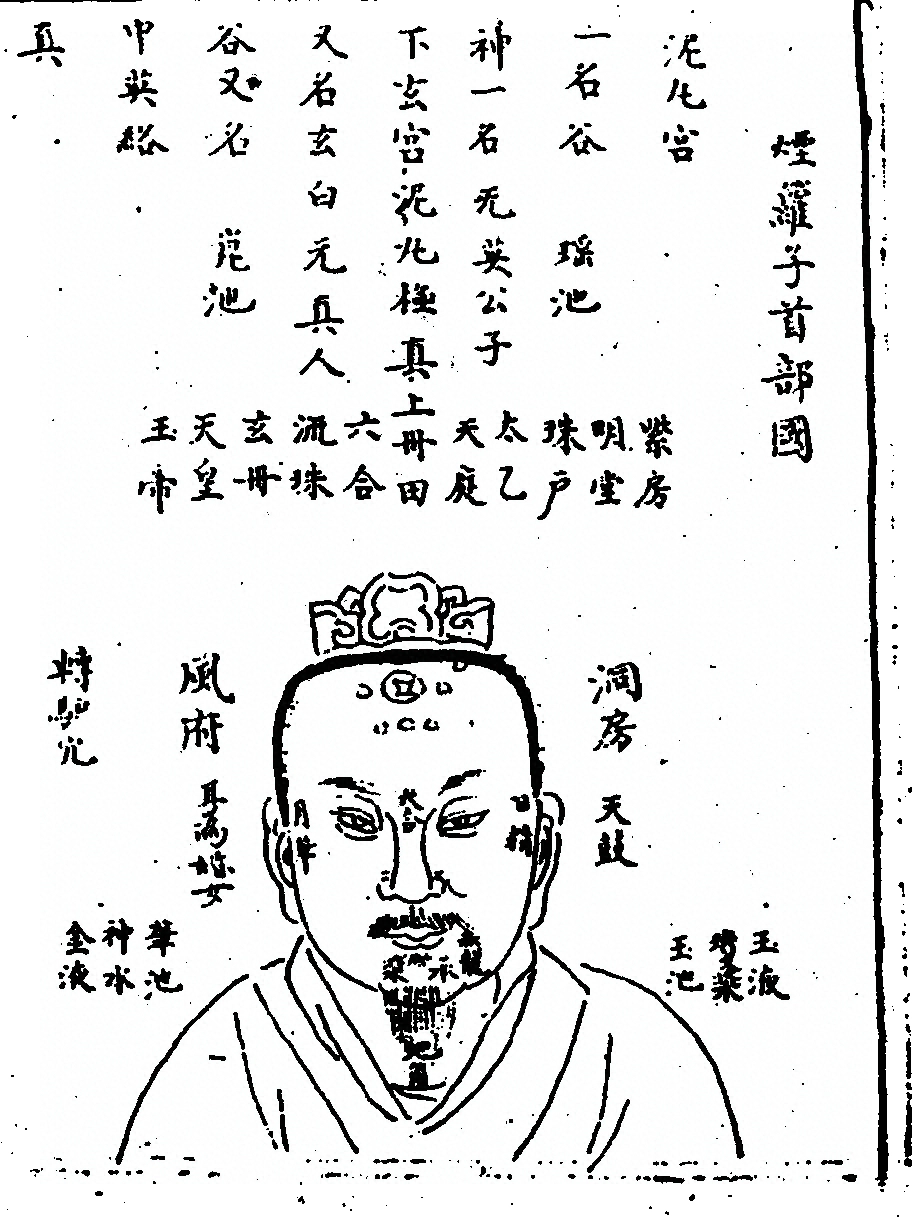 煙蘿子首部圖
泥丸宮
一名谷
瑶池
神一名无英公子
下玄宮泥丸極真上丹田
又名玄白元真人
谷又名
崑池
中英
真
紫房
明堂
珠户
太乙
天庭
六合
流珠
玄丹
天皇
玉帝
洞房
天鼓
風府
耳為
轉
穴
日
月華
玉液
玉池
華池
神水
金液
承